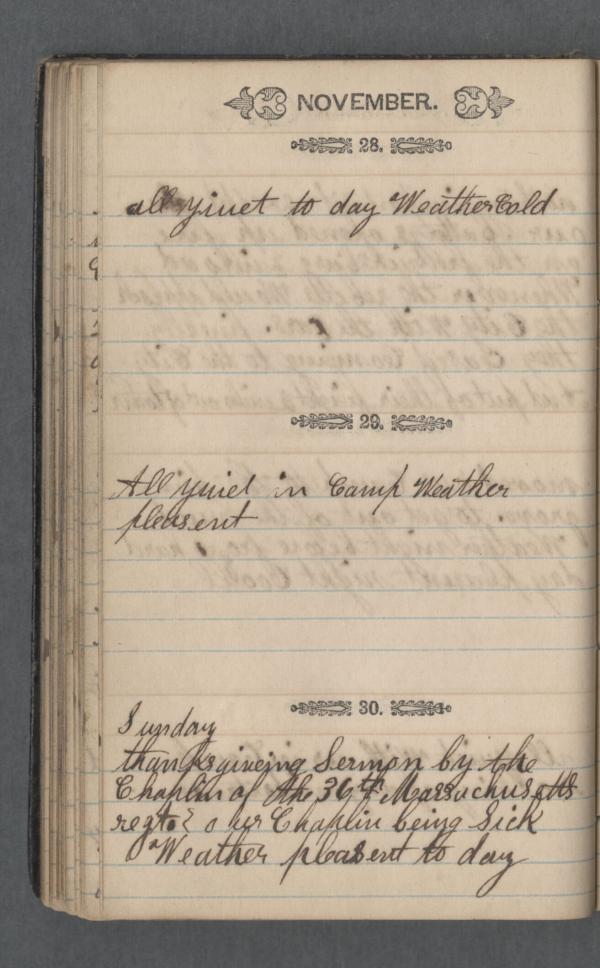 NOVEMBER.
28.
all quiet to day Weather Cold
29.
All quiet in Camp Weather
pleasent
30.
Sunday
thanksgiveing Sermon by the
Chaplin of the 36th Massachusatts
regt our Chaplin being Sick
Weather pleasent to day